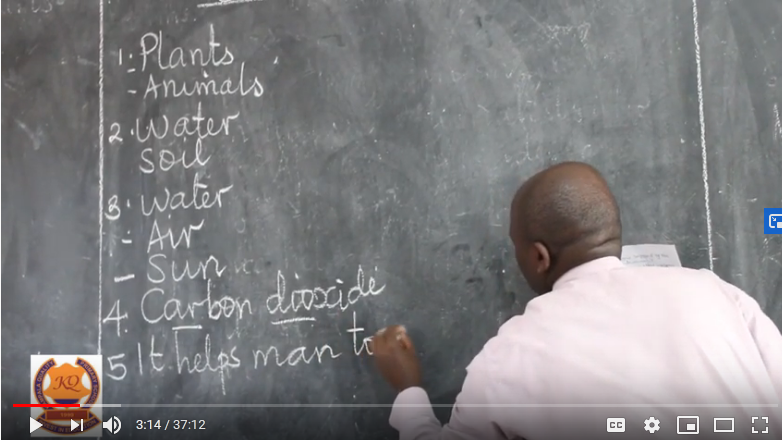 1. Plants
- Animals
2. Water
soil
3. Water
- Air
- Sun
4. Carbon dioxide
5 It helps man to
KQ
3:14 / 37:12
CC